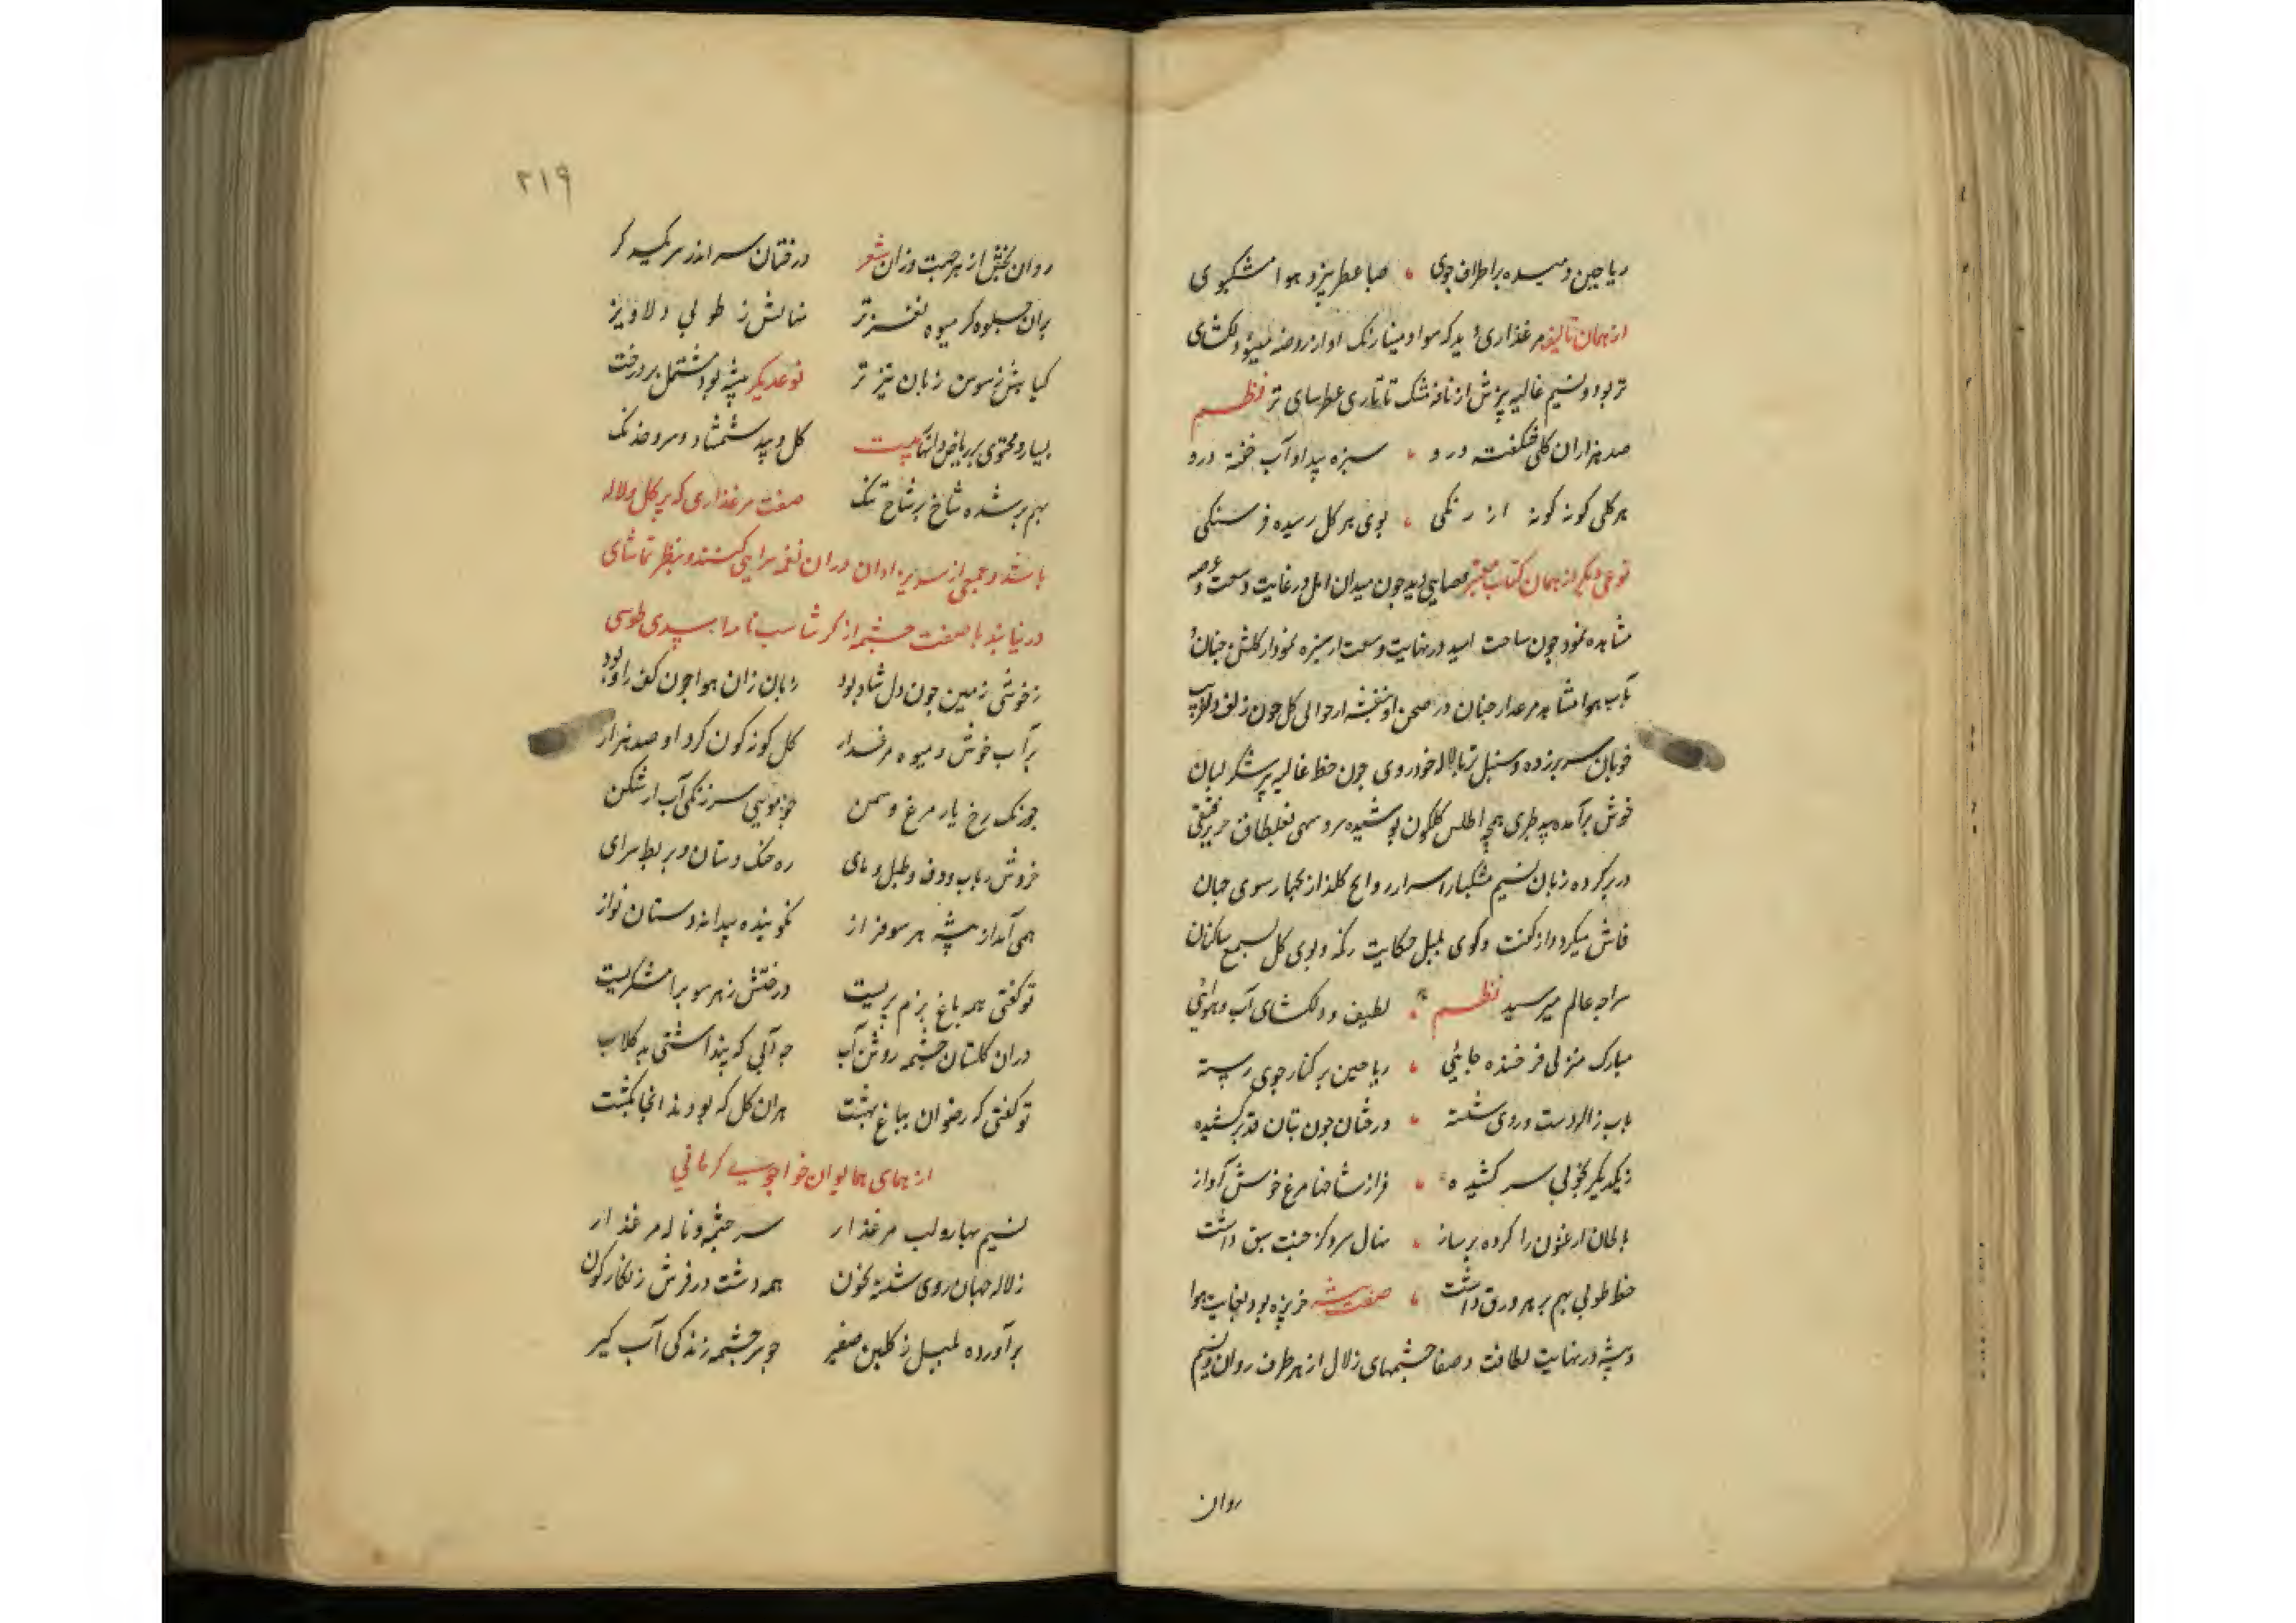 ریاحین دمیده بر اطراف جوی صبا عطر بیز و هوا مشکبوی
از همان تالیف مرغذاری دید که سواد مینا رنک او از روضه مینو دلکشای
تر بود و نسیم غالیه بیزش از نافه مشک تاتاری عطر سای تر نظم
صد هزاران کل شکفته درو سبزه بیدار و آب خفته درو
هر کلی کونه کونه از رنکی بوی هر کل رسیده فرسنکی
نوعی دیگر از همان کتاب معتبر فضایی دید چون میدان امل در غایت وسعت و عرصه
مشاهده نمود چون ساحت امید در نهایت وسعت از سبزه نمودار کلشن جنان
در صحن او بنفشه از حوالی کل چون زلف دلاویز
خوبان سر بر زده و سنبل تر با لاله خودروی چون خط غالیه بر شکر لبان
خوش برآمده بید طبری همچو اطلس کلکون پوشیده سرو سهی بغلطاق حریر فستقی
در بر کرده زبان نسیم مشکبار اسرار روایح کلزار بهار سوی جهان
فاش میکرد و از کفت و کوی بلبل حکایت رنک و بوی کل بسمع ساکنان
عالم میرسید نظم لطیف و دلکشای آب و هوائی
مبارک منزلی فرخنده جایئی ریاحین بر کنار جوی رسته
بآب ژاله دست و روی شسته درختان چون بتان قد بر کشیده
ز یکدیکر بخوبی سر کشیده فراز شاخها مرغ خوش آواز
بالحان ارغنون را کرده بر ساز نهال سرو کز جنت سبق داشت
خط طوبی بهم بر هر ورق داشت صفت بیشه جزیره بود بغایت هوا
و بیشه در نهایت لطافت و صفا چشمهای زلال از هر طرف روان و نسیم
روان
۲۱۹
روان بخش از هر جهت وزان شعر درختان سر اندر سر یکدکر
بران جلوه کر میوه نغز تر نهالش ز طوبی دلاویز
کیاهش ز سوسن زبان تیز تر نوعدیکر بیشه بود مشتمل بر درخت
بسیار و محتوی بر ریاض و انهار بیت کل و بید شمشاد و سرو خدنک
بهم بر شده شاخ بر شاخ تنک صفت مرغذاری که پر کل و لاله
باشد و جمعی از دران نغمه سرایی کنند و بنظر تماشای
در نیایند با صفت چشمه از کرشاسب نامه اسدی طوسی
ز خوشی زمین چون دل شاد بود زبان زان هوا چون کف راد بود
پر آب خوش و میوه مرغسار کل کونه کون کرد او صد هزار
چو رنک رخ یار مرغ و سمن چو موی سر زنکی آب از شکن
خروش رباب و دف و طبل و نای ره چنک و دستان و بربط سرای
همی آمد از بیشه هر سو فراز نکوینده پیدا نه دستان نواز
تو کفتی همه باغ بزم پریست درختش ز هر سو برامشکریست
دران کلستان چشمه روشن آب چه آبی که پنداشتی بد کلاب
تو کفتی که رضوان بباغ بهشت هران کل که بودند انجا بکشت
از همای همایون خواجوی کرمانی
نسیم بهار و لب مرغذار سر چشمه و ناله مرغ زار
ز لاله جهان روی شسته بخون همه دشت در فرش زنکار کون
برآورده بلبل ز کلبن صفیر چو سر چشمه زندکی آب کیر